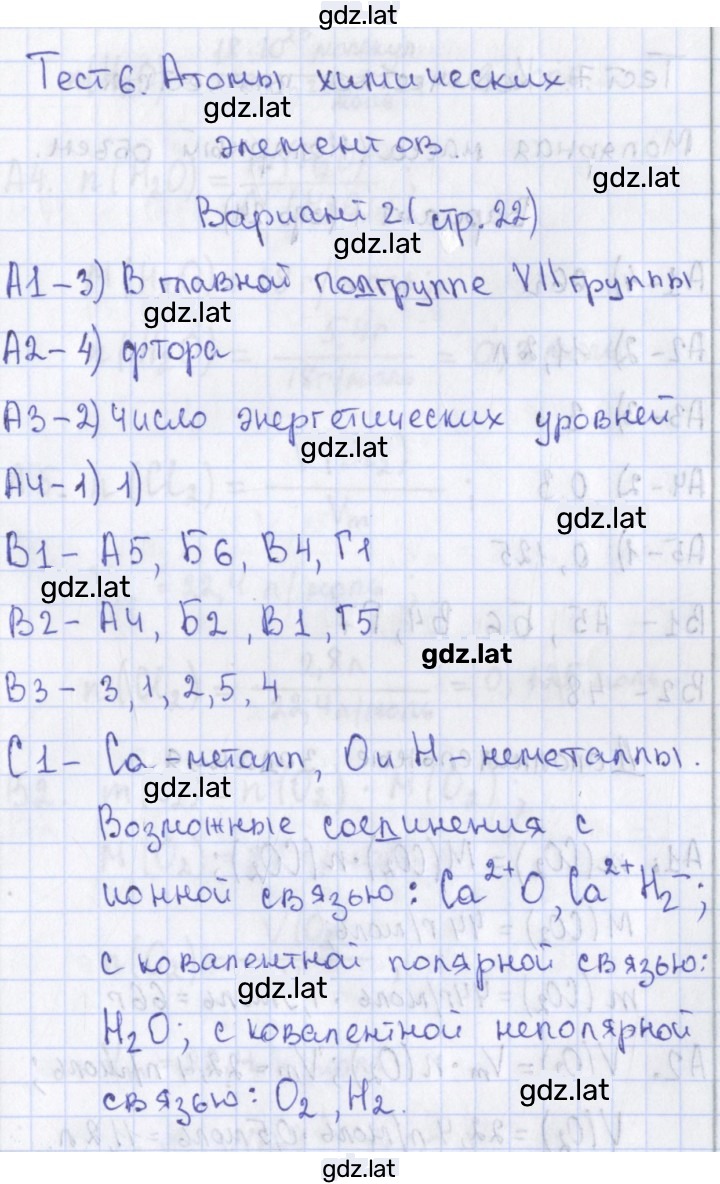 gdz.lat
Тест 6. Атомы химических
gdz.lat
элементов.
gdz.lat
Вариант 2 (стр. 22)
gdz.lat
А1 - 3) В главной подгруппе VII группы
gdz.lat
А2 - 4) фтора
А3 - 2) Число энергетических уровней
gdz.lat
А4 - 1) 1)
gdz.lat
В1 - А5, Б6, В4, Г1
gdz.lat
В2 - А4, Б2, В1, Г5
gdz.lat
В3 - 3, 1, 2, 5, 4
С1 - Ca - металл, O и H - неметаллы.
gdz.lat
Возможные соединения с
ионной связью: Ca²⁺O, Ca²⁺H₂⁻;
с ковалентной полярной связью:
gdz.lat
H₂O; с ковалентной неполярной
связью: O₂, H₂.
gdz.lat
gdz.lat